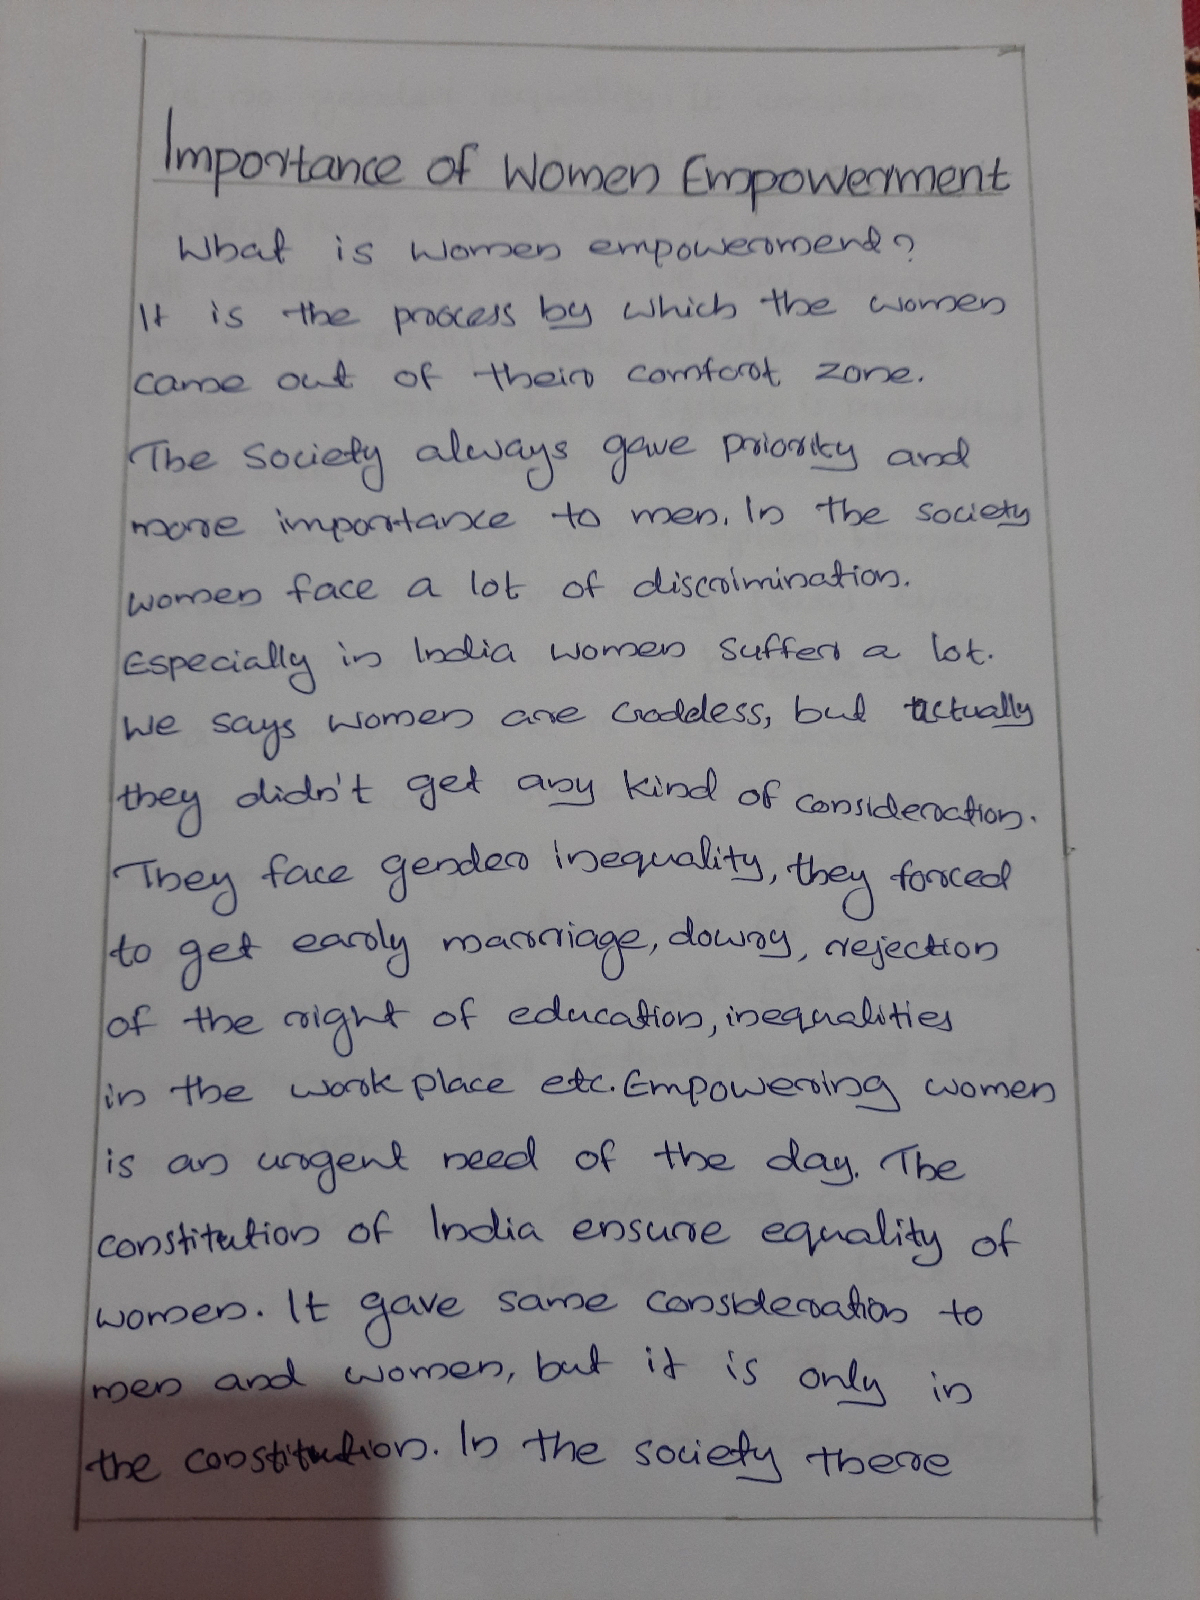 Importance of Women Empowerment
What is women empowerment?
It is the process by which the women
came out of their comfort zone.
The Society always gave priority and
more importance to men. In the society
women face a lot of discrimination.
Especially in India women suffer a lot.
We says women are Goddess, but actually
they didn't get any kind of consideration.
They face gender inequality, they forced
to get early marriage, dowry, rejection
of the right of education, inequalities
in the work place etc. Empowering women
is an urgent need of the day. The
constitution of India ensure equality of
women. It gave same consideration to
men and women, but it is only in
the constitution. In the society there